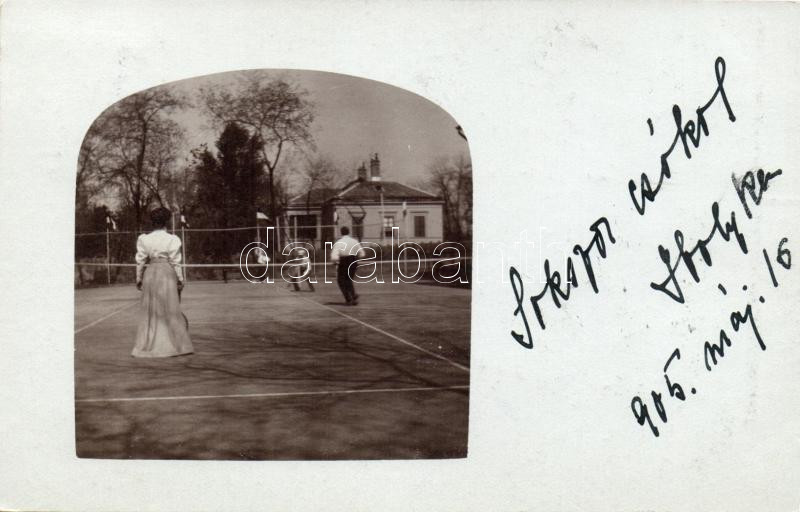 Sokszor csókol
Ibolyka
905. máj. 16
darabanth